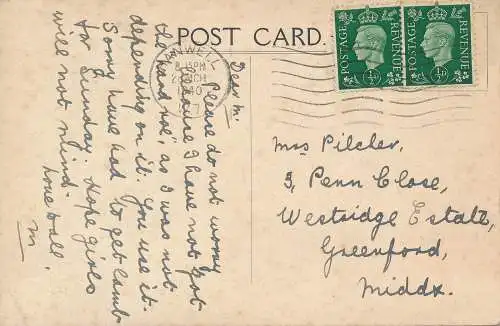 POST CARD.
POSTAGE
REVENUE
½D
POSTAGE
REVENUE
½D
8.15PM
Dear M.
Please do not worry
because I have not got
the hand roe, as I was not
depending on it. You use it.
Sorry have had to get lamb
for Sunday. Hope girls
will not mind.
Love to all.
M
Mrs Pilcher,
3, Penn Close,
Westridge Estate,
Greenford,
Middx.